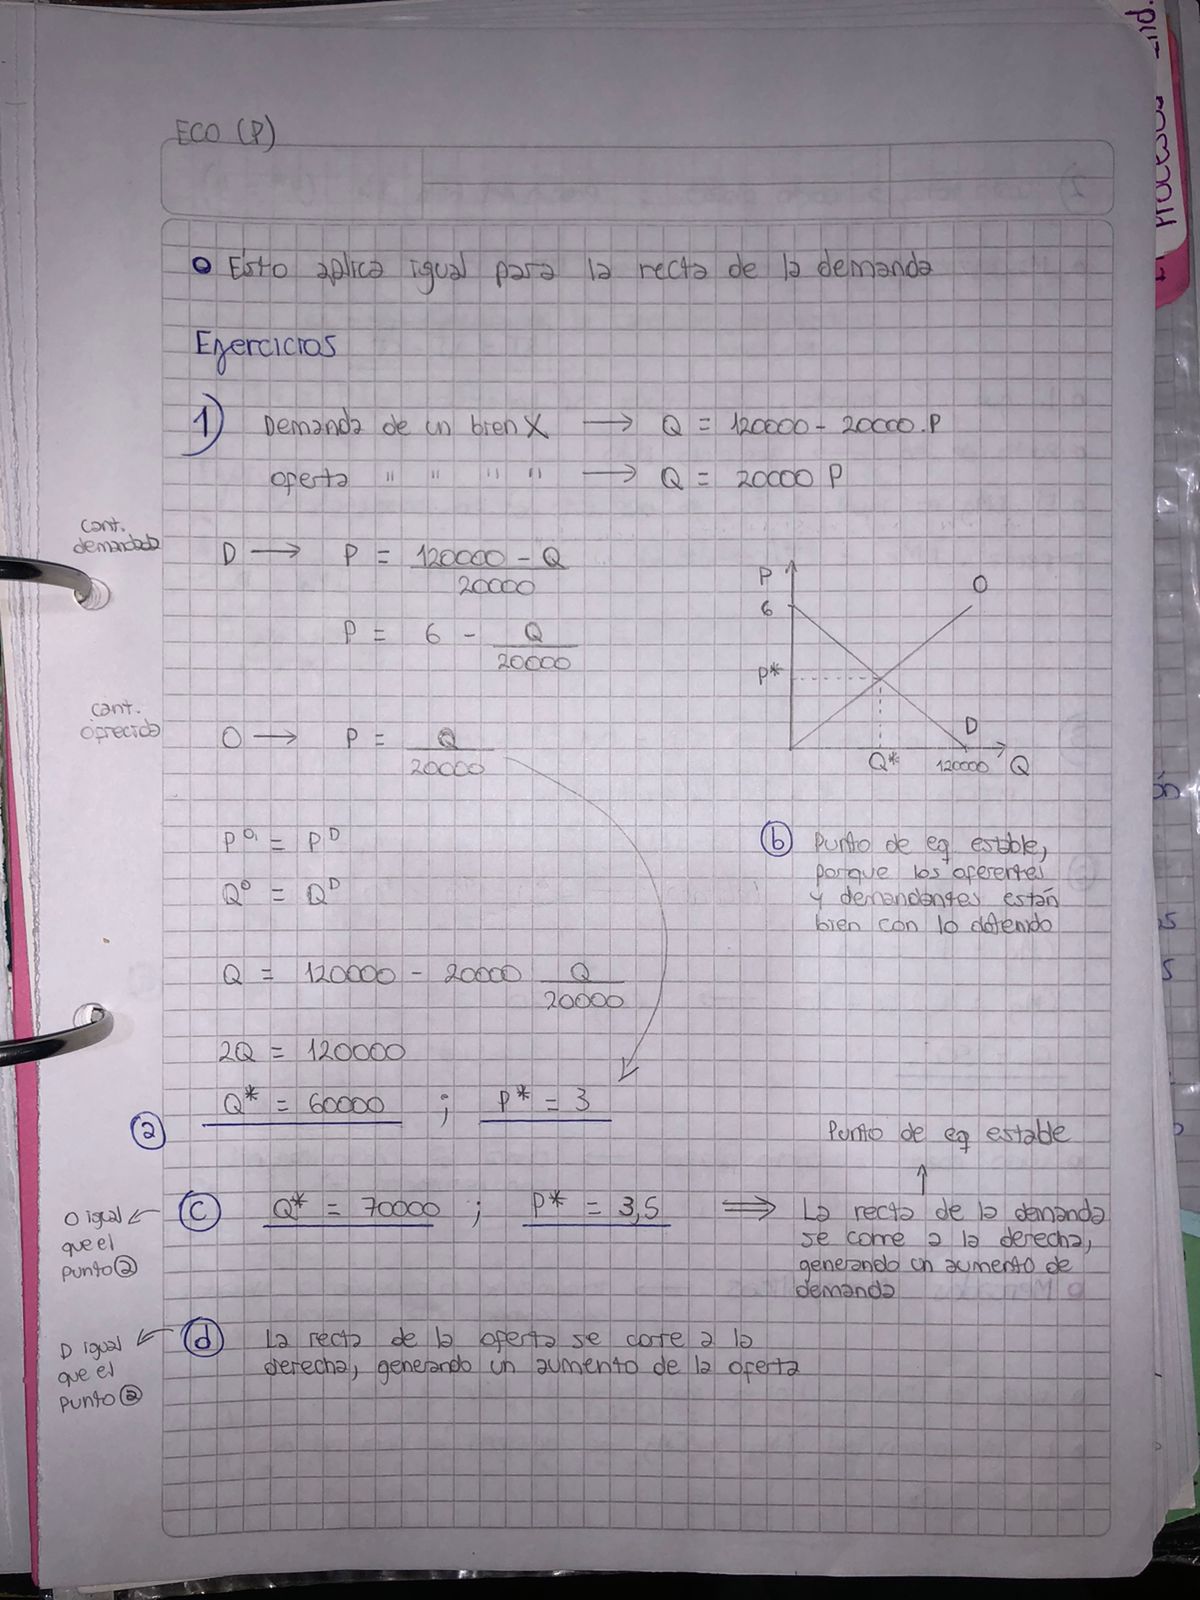 ECO (P)
• Esto aplica igual para la recta de la demanda
Ejercicios
1) Demanda de un bien X → Q = 120000 - 20000.P
oferta " " " " → Q = 20000 P
cant.
demandada
D → P = 120000 - Q / 20000
P = 6 - Q / 20000
cant.
ofrecida
O → P = Q / 20000
P
6
P*
O
D
Q*
120000
Q
P^O = P^D
Q^O = Q^D
Q = 120000 - 20000 Q / 20000
2Q = 120000
a) Q* = 60000 ; P* = 3
b) Punto de eq estable,
porque los oferentes
y demandantes están
bien con lo obtenido
Punto de eq estable
↑
O igual ←
que el
punto a
c) Q* = 70000 ; P* = 3,5 ⇒ La recta de la demanda
se corre a la derecha,
generando un aumento de
demanda
D igual ←
que el
punto a
d) La recta de la oferta se corre a la
derecha, generando un aumento de la oferta
Procesos Ind.